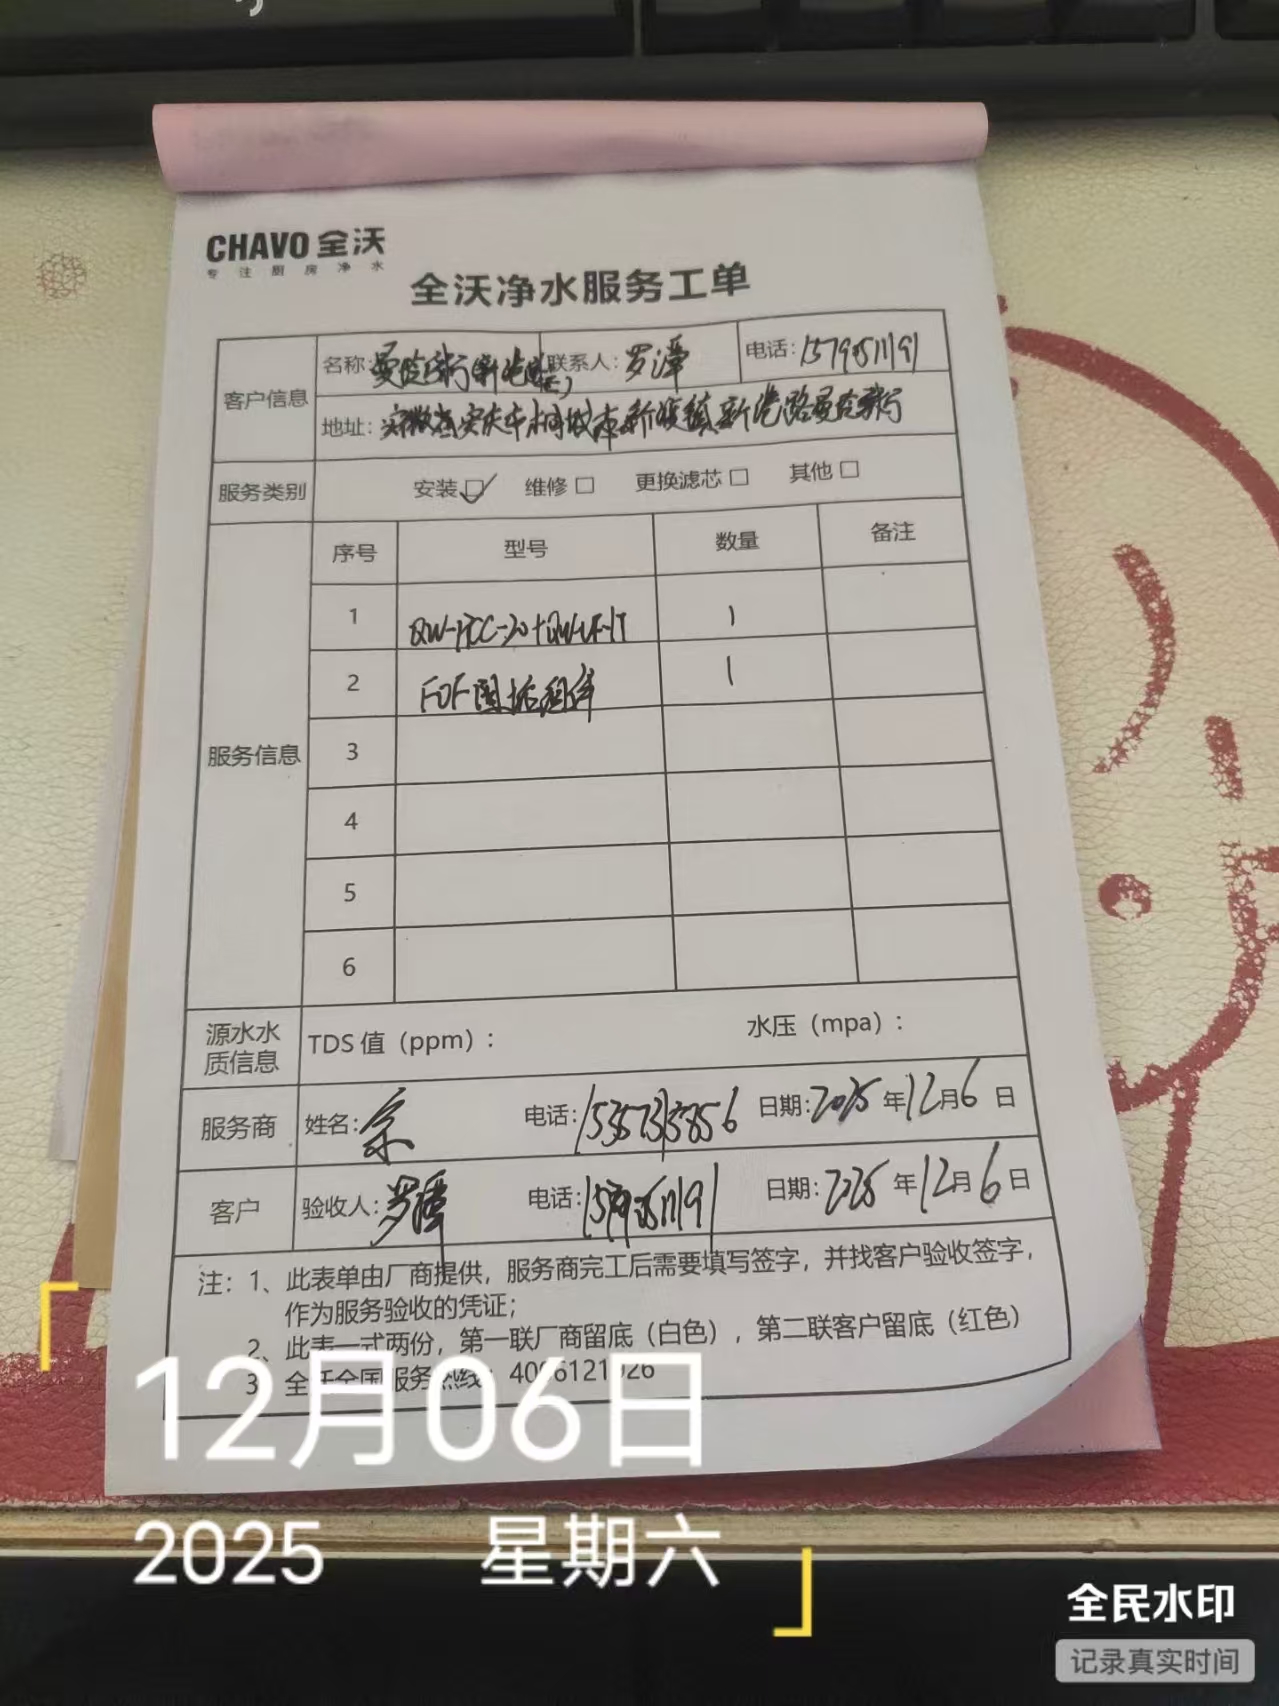 CHAVO 全沃
专注厨房净水
全沃净水服务工单
客户信息
名称:
联系人: 罗潭
电话:
地址: 安徽省安庆市桐城市新渡镇新
服务类别
安装☑ 维修☐ 更换滤芯☐ 其他☐
服务信息
序号 型号 数量 备注
1 1
2 FOF 组件 1
3
4
5
6
源水水质信息
TDS 值（ppm）: 水压（mpa）:
服务商 姓名: 电话: 日期: 2025 年 12 月 6 日
客户 验收人: 罗潭 电话: 日期: 2025 年 12 月 6 日
注: 1、此表单由厂商提供，服务商完工后需要填写签字，并找客户验收签字，
作为服务验收的凭证；
2、此表一式两份，第一联厂商留底（白色），第二联客户留底（红色）
3 全沃全国服务热线:
12月06日
2025 星期六
全民水印
记录真实时间